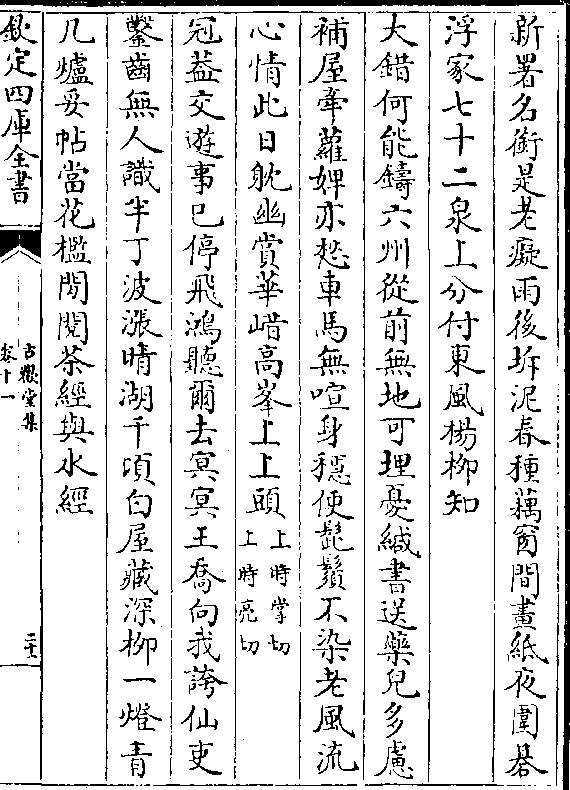 新署名銜是老癡雨後坼泥春種藕窗間畫紙夜圍碁
浮家七十二泉上分付東風楊柳知
大錯何能鑄六州從前無地可埋憂緘書送藥兒多慮
補屋牽蘿婢亦愁車馬無喧身穩便髭鬚不染老風流
心情此日躭幽賞華㟙高峯上上頭上時掌切上時亮切
冠葢交遊事已停飛鴻聽爾去冥冥王喬向我誇仙吏
鑿齒無人識半丁波漲晴湖千頃白屋藏深柳一燈青
几爐妥帖當花檻閒閱茶經與水經
欽定四庫全書
古歡堂集
卷十一
二十一